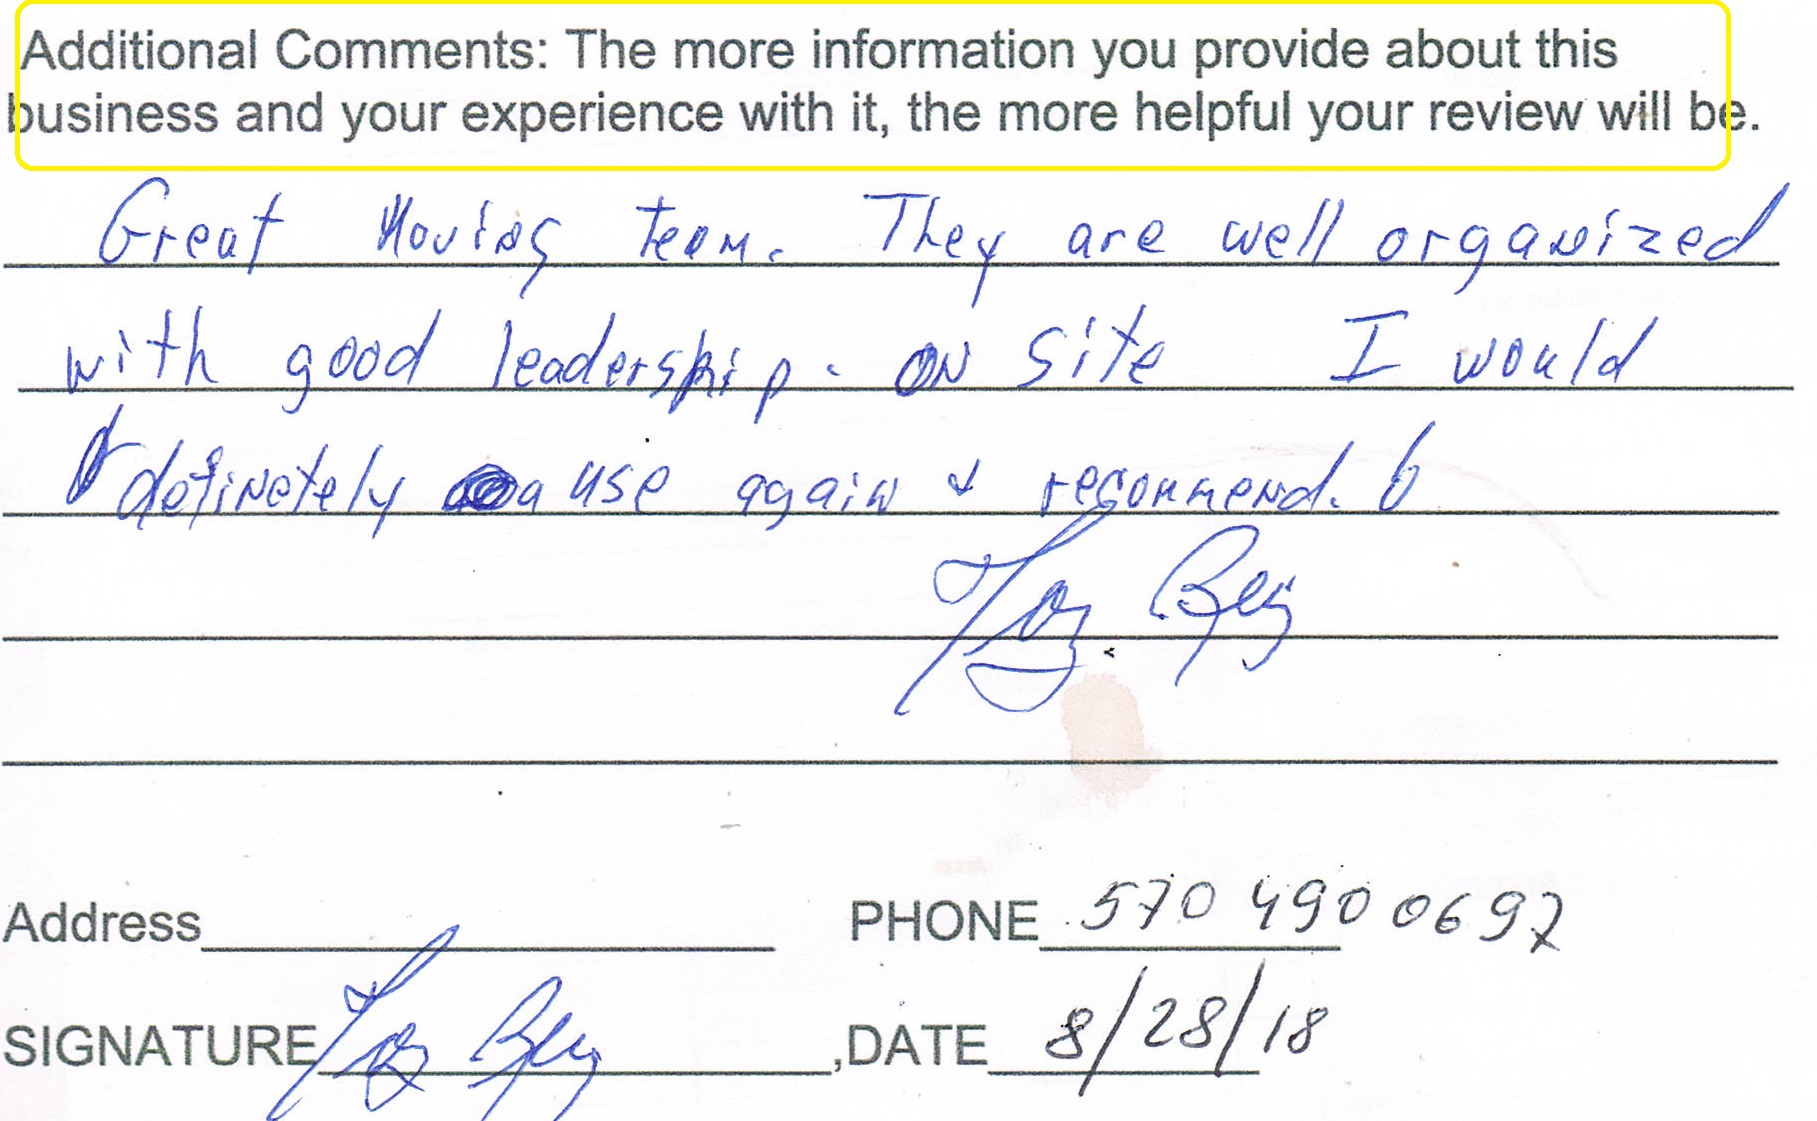 Additional Comments: The more information you provide about this
business and your experience with it, the more helpful your review will be.
Great Moving team. They are well organized
with good leadership. ON Site I would
definetely use again & recommend.
Address PHONE 570 490 0697
SIGNATURE ,DATE 8/28/18